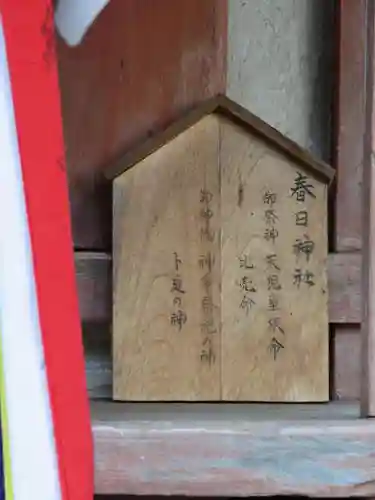 春日神社
御祭神 天児屋根命
比売命
御神徳 神事宗祀の神
卜定の神